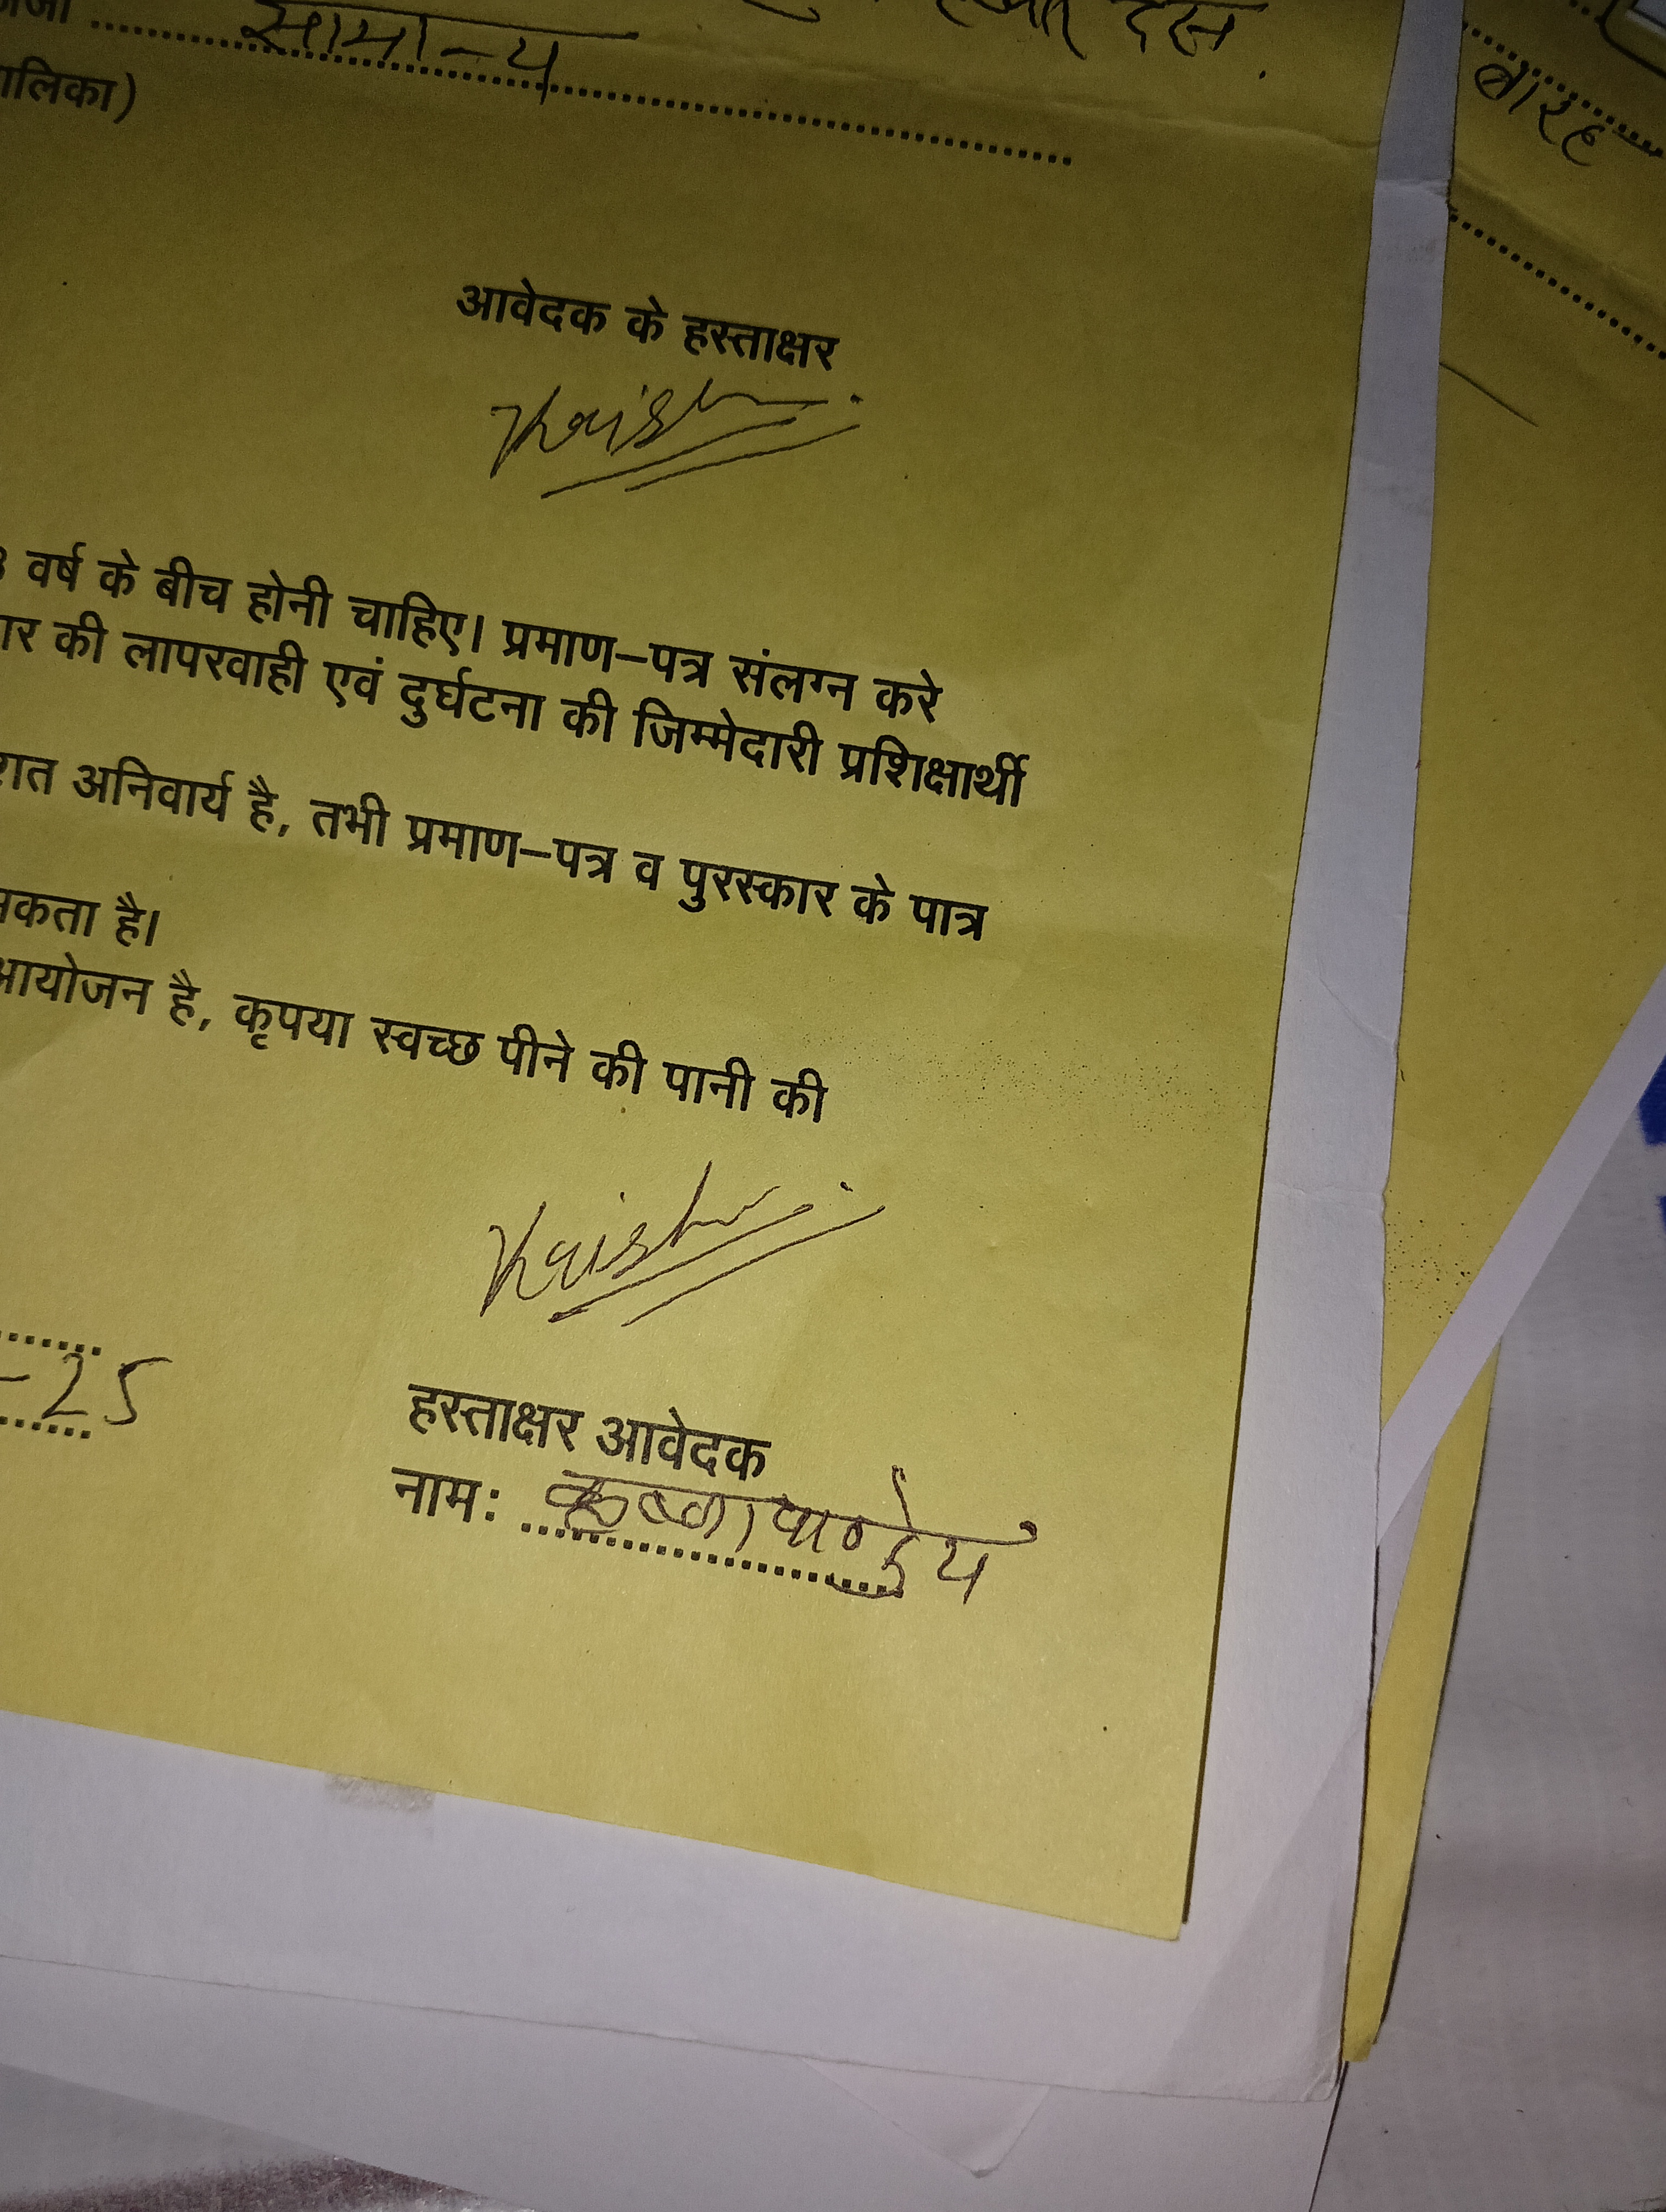 सामान्य
ालिका)
बारह
आवेदक के हस्ताक्षर
Krishna
वर्ष के बीच होनी चाहिए। प्रमाण–पत्र संलग्न करे
ार की लापरवाही एवं दुर्घटना की जिम्मेदारी प्रशिक्षार्थी
शत अनिवार्य है, तभी प्रमाण–पत्र व पुरस्कार के पात्र
सकता है।
आयोजन है, कृपया स्वच्छ पीने की पानी की
Krishna
-25
हस्ताक्षर आवेदक
नाम: कृष्णा पाण्डेय